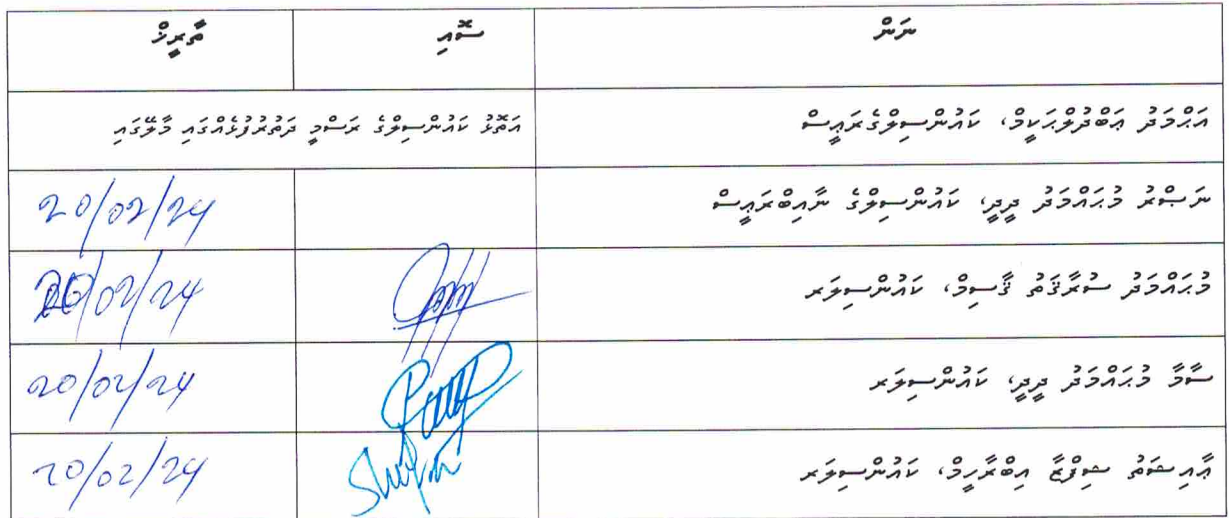 ނަން ސޮއި ތާރީޚް
އަޙްމަދު ޢަބްދުލްޙަކީމް، ކައުންސިލްގެރައީސް އަތޮޅު ކައުންސިލްގެ ރަސްމީ ދަތުރުފުޅެއްގައި މާލޭގައި
ނަޞްރު މުޙައްމަދު ދީދީ، ކައުންސިލްގެ ނާއިބްރައީސް 20/02/24
މުޙައްމަދު ސުރާޤަތު ޤާސިމް، ކައުންސިލަރ 20/02/24
ސާމާ މުޙައްމަދު ދީދީ، ކައުންސިލަރ 20/02/24
ޢާއިޝަތު ޝިފްޒާ އިބްރާހީމް، ކައުންސިލަރ 20/02/24